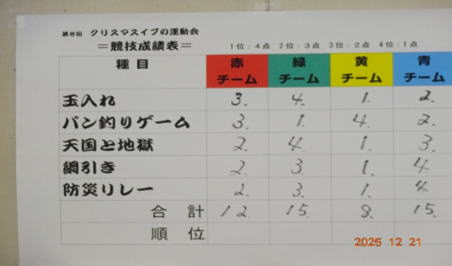 第8回 クリスマスイブの運動会
＝競技成績表＝ 1位：4点 2位：3点 3位：2点 4位：1点
種目 赤チーム 緑チーム 黄チーム 青チーム
玉入れ 3. 4. 1. 2.
パン釣りゲーム 3. 1. 4. 2.
天国と地獄 2. 4. 1. 3.
綱引き 2. 3. 1. 4
防災リレー 2. 3. 1. 4.
合計 12. 15. 8. 15.
順位
2025 12 21